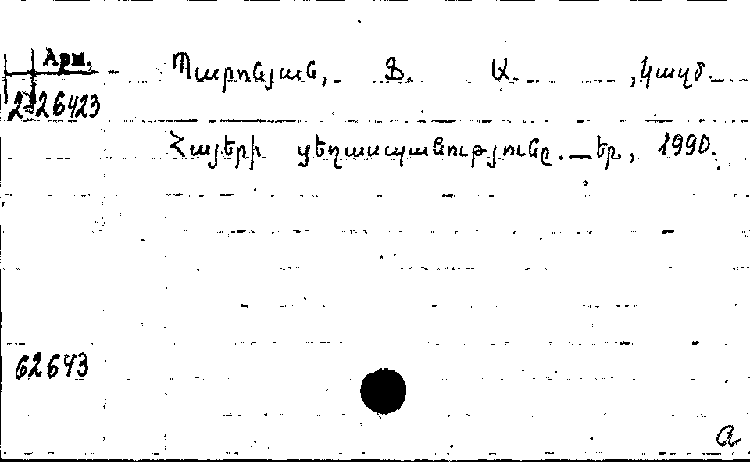 Арм.
Պարոնյան, Ֆ. Ա. , կազմ.
2-26423
Հայերի ցեղասպանությունը. _ Եր, 1990.
62643
a